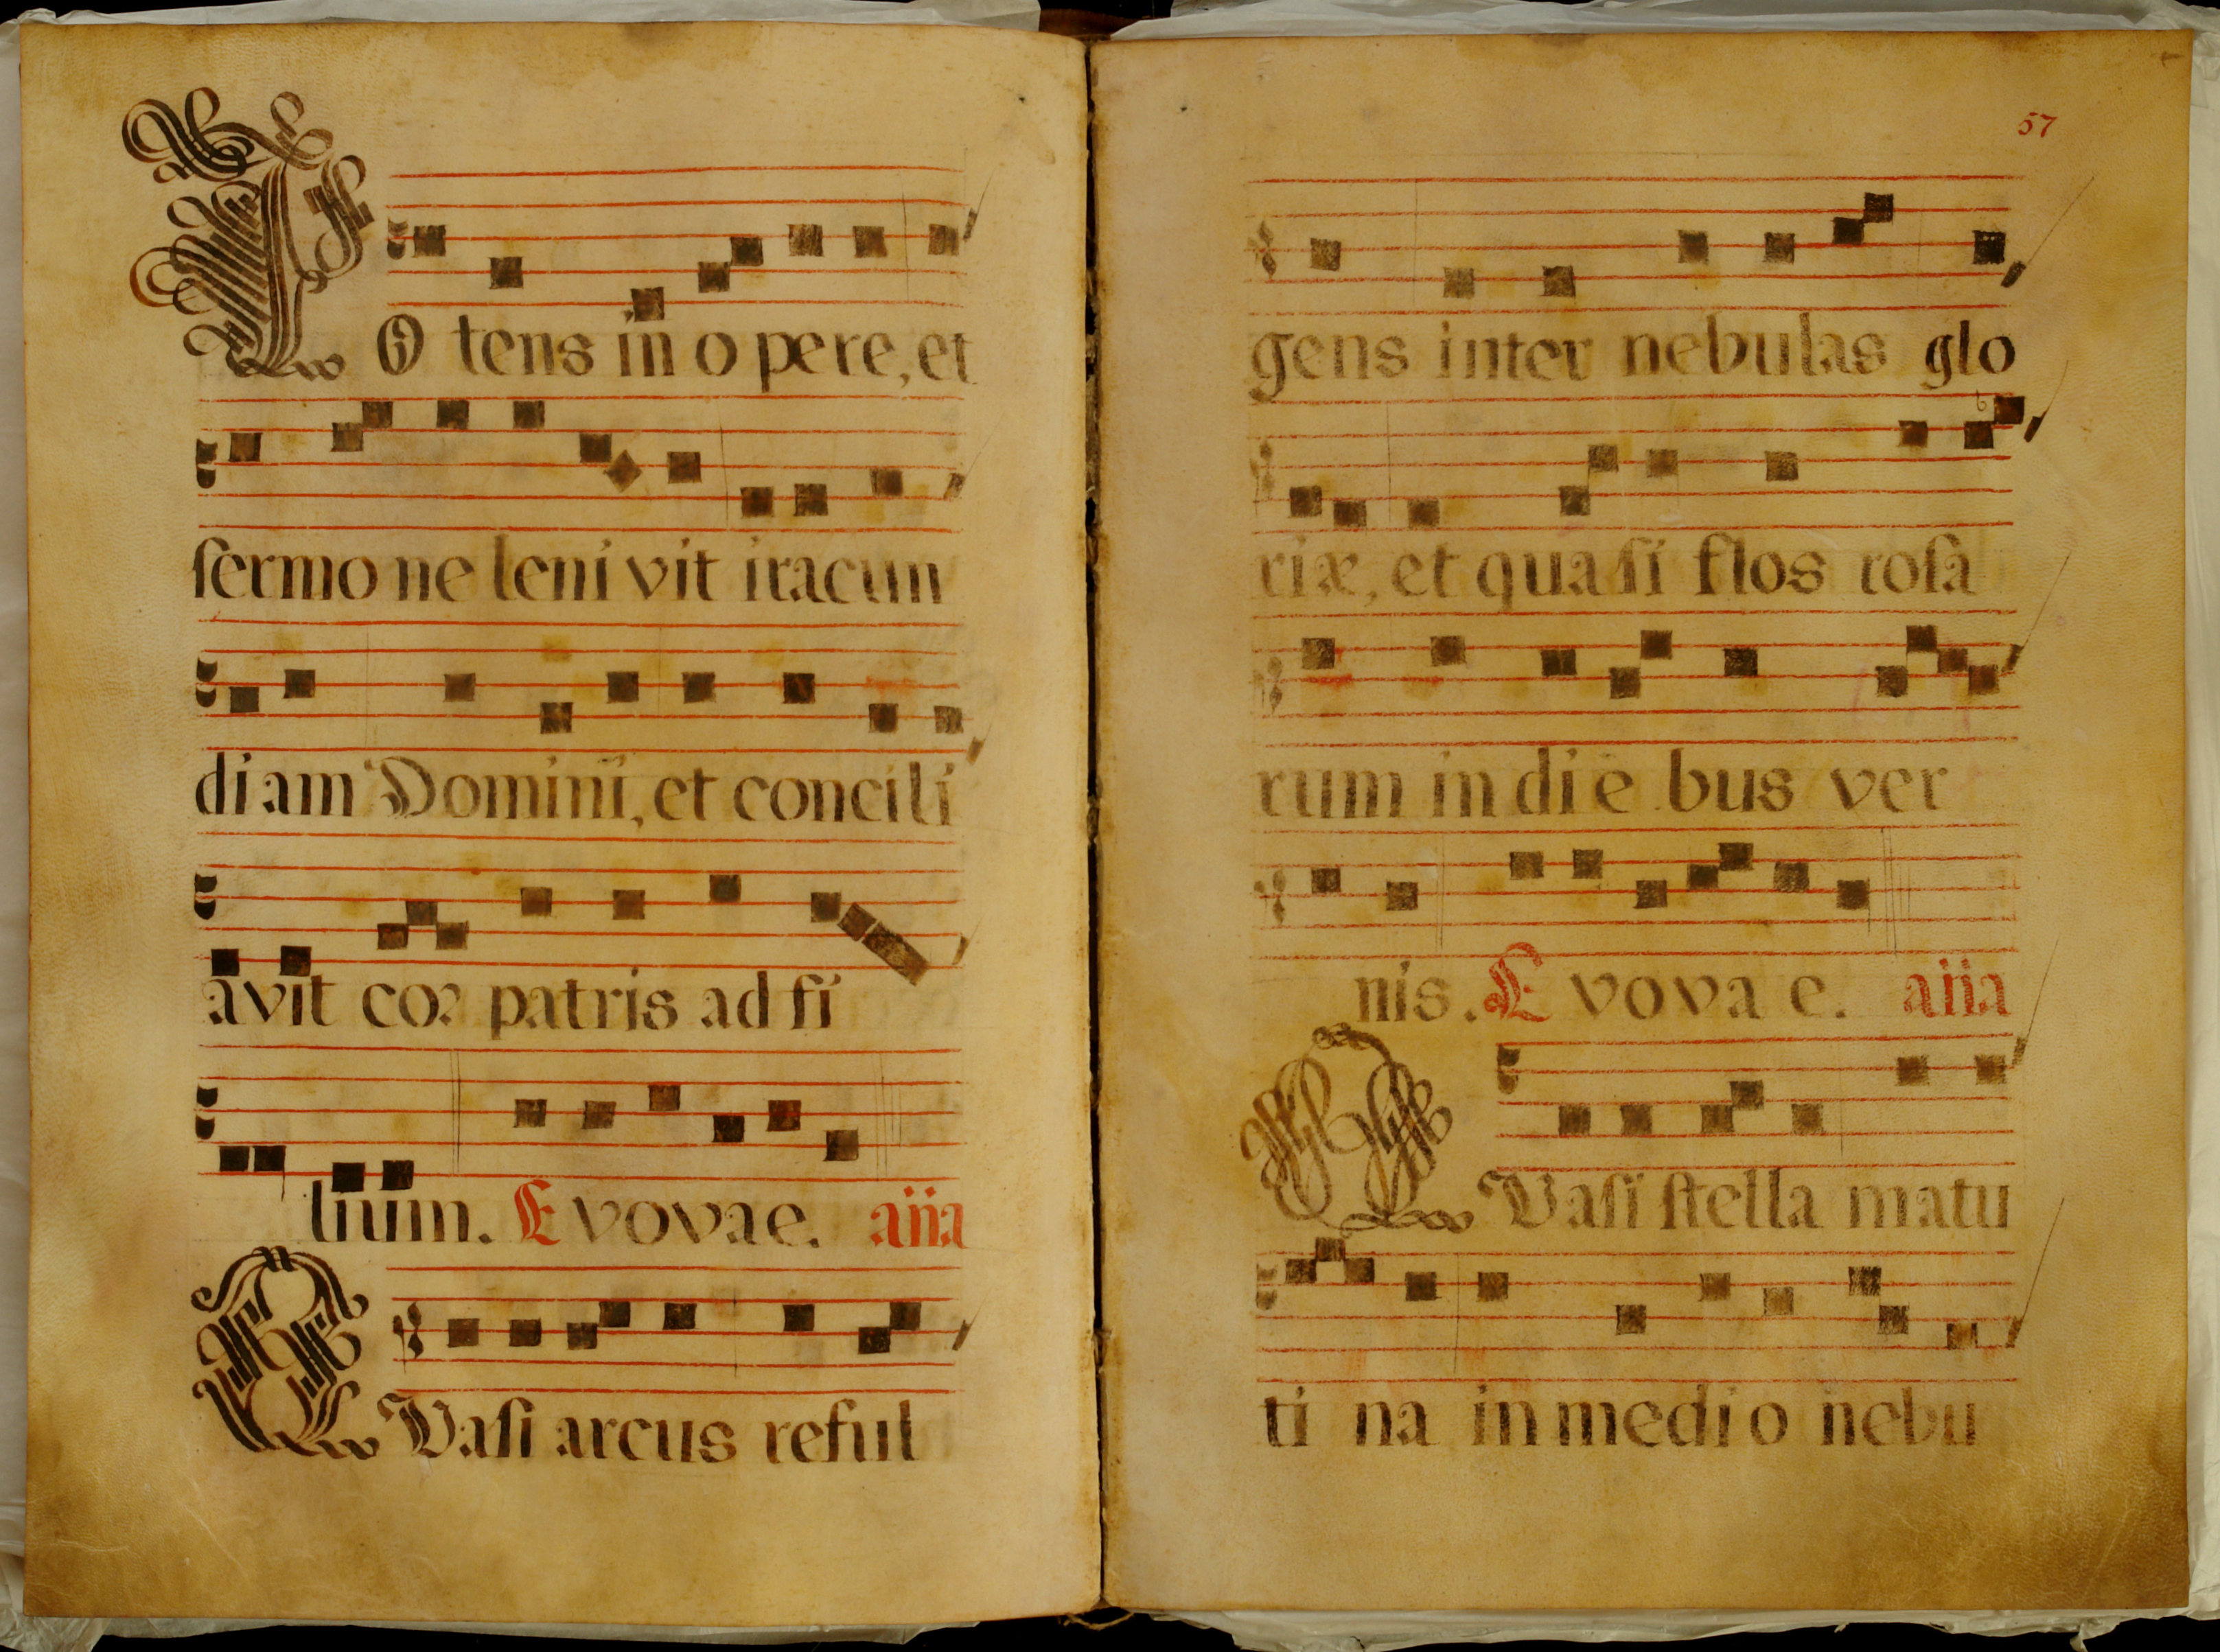 PO tens in o pere, et
sermo ne leni vit iracun
di am Domini, et concili
avit cor patris ad fi
lium. E vovae. aña
QVasi arcus reful
57
gens inter nebulas glo
riæ, et quasi flos rosa
rum in di e bus ver
nis. E vova e. aña
QVasi stella matu
ti na in medi o nebu